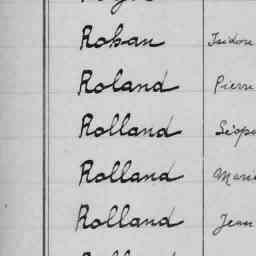 Rohan Isidore
Roland Pierre
Rolland
Rolland Marie
Rolland Jean